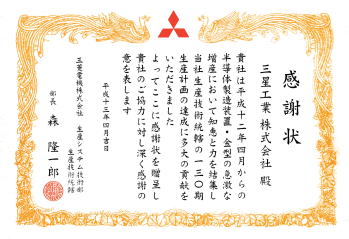 感謝状
三星工業株式会社 殿
貴社は平成十二年四月からの
半導体製造装置・金型の急激な
増産において知恵と力を結集し
当社生産技術統轄の一三〇期
生産計画の達成に多大の貢献を
いただきました
よってここに感謝状を贈呈し
貴社のご協力に対し深く感謝の
意を表します
平成十三年四月吉日
三菱電機株式会社 生産システム技術部
生産技術統轄
部長 森 隆一郎